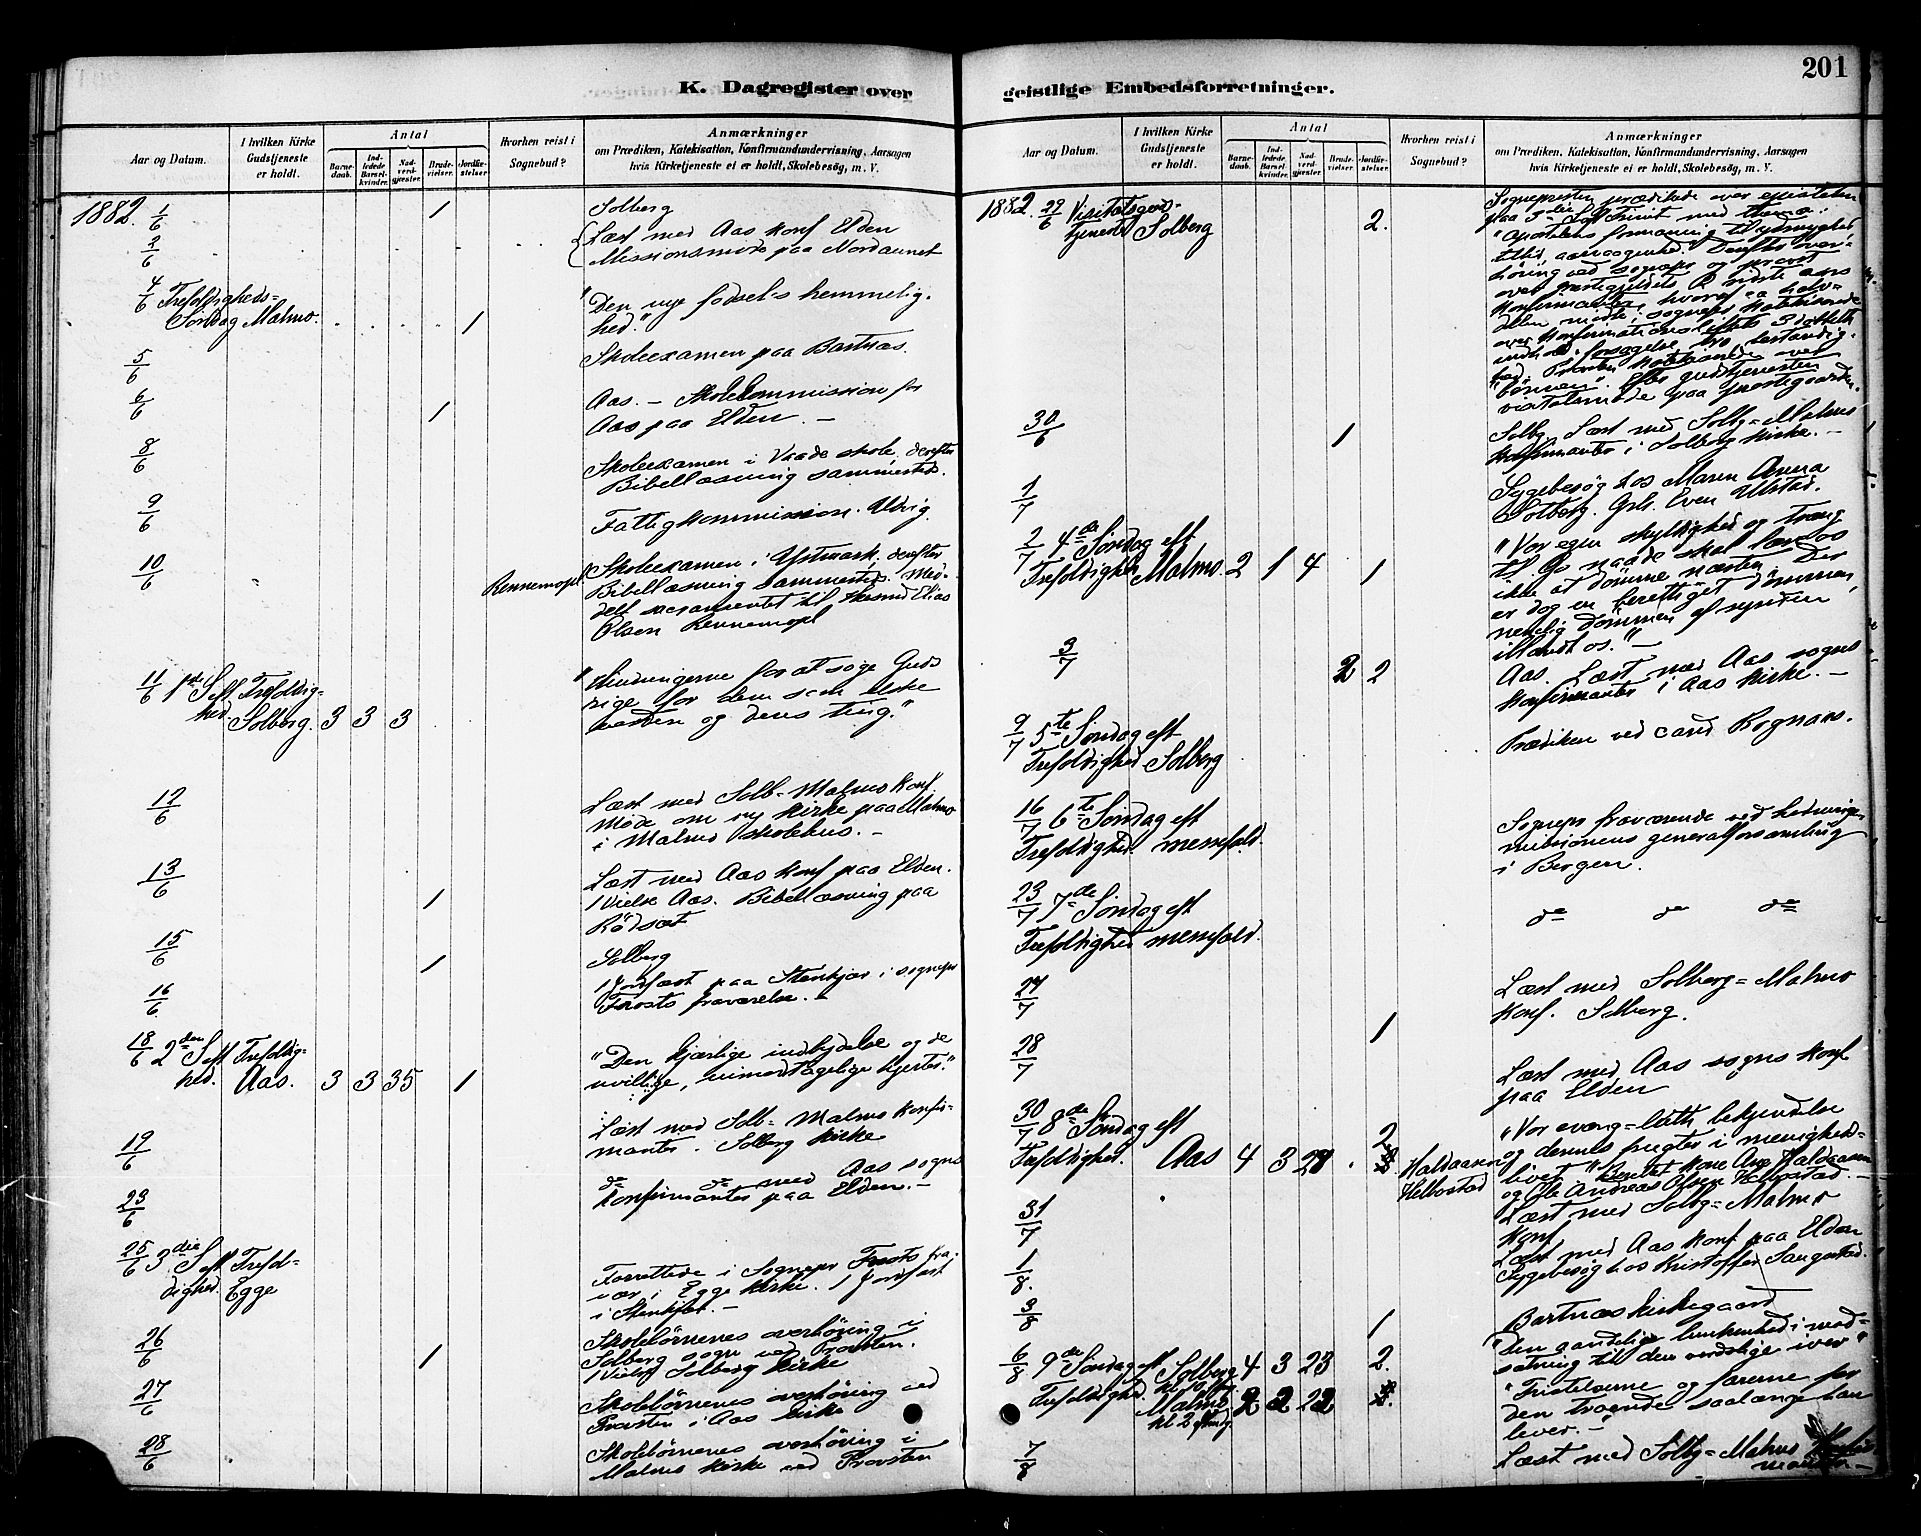 201
K. Dagregister over
Aar og Datum.
I hvilken Kirke
Gudstjeneste
er holdt.
Antal
Barne-
daab.
Ind-
ledede
Barsel-
kvinder.
Nad-
verd-
gjæster.
Brude-
vielser.
Jordfæ-
stelser.
Hvorhen reist i
Sognebud?
Anmærkninger
om Prædiken, Katekisation, Konfirmandundervisning, Aarsagen
hvis Kirketjeneste ei er holdt, Skolebesøg, m. V.
1882. 1/6 1 Solberg
2/6 Læst med Aas Konf Elden
Missionsmøte paa Nordaunet
4/6 Trefoldigheds-
Søndag Malmo. 1
"Den nye fødsels hemmelig-
hed."
5/6 Skoleexamen paa Bartnæs.
6/6 1 Aas. – Skolekommission for
Aas paa Elden. –
8/6 Skoleexamen i Vaade skole, derefter
Bibellæsning sammesteds.
9/6 Fattigkommission.
10/6 Rennemopl Skoleexamen i Ystmark, derefter
Bibellæsning sammesteds. Med-
delt sacramentet til Elias
Olsen Rennemopl
11/6 1ste S eft Trefoldig-
hed. Solberg. 3 3 3
"Hindringerne for at søge Guds
rige for dem som elske
verden og dens ting."
12/6 Læst med Solb=Malmo Konf.
Møde om ny kirke paa Malmo
i Malmo skolehus. –
13/6 1 Læst med Aas Konf paa Elden.
1 Vielse Aas. Bibellæsning paa
Rødsæt
15/6 1 Solberg
16/6 1 Jordfæst paa Stenkjær i sognepr
Frosts fraværelse. –
18/6 2den S eft Trefoldig-
hed. Aas. 3 3 35 1
"Den kjærlige indbydelse og de
uvillige, uimodtagelige hjerter."
19/6 Læst med Solb=Malmo Konfir-
manter. Solberg Kirke
23/6 do do med Aas sogns
Konfirmanter paa Elden. –
25/6 3die S eft Trefol-
dighed. Egge
Forrettede i Sognepr Frosts fra-
vær i Egge Kirke. 1 Jordfæst
i Stenkjær. –
26/6 1 Skolebørnenes overhøring i
Solberg sogn ved Provsten.
1 Vielse Solberg Kirke
27/6 Skolebørnenes overhøring ved
Provsten i Aas Kirke
28/6 Skolebørnenes overhøring i
Malmo Kirke ved Provsten
geistlige Embedsforretninger.
Aar og Datum.
I hvilken Kirke
Gudstjeneste
er holdt.
Antal
Barne-
daab.
Ind-
ledede
Barsel-
kvinder.
Nad-
verd-
gjæster.
Brude-
vielser.
Jordfæ-
stelser.
Hvorhen reist i
Sognebud?
Anmærkninger
om Prædiken, Katekisation, Konfirmandundervisning, Aarsagen
hvis Kirketjeneste ei er holdt, Skolebesøg, m. V.
1882. 29/6 Visitatsgud-
tjeneste Solberg 2.
Sognepresten prædikede over epistelen
paa 3die S eft Trinit med thema:
"Apostelens formaning til ydmyghed
tillid, aarvaagenhed". Derefter over-
høring ved sognepr og provst
over præstegjeldets sidste aars
Konfirmanter, hvoraf ca halv-
delen mødte; sognepr katekiserede
over Konfirmationsløftets 3 dobbelte
indhold: forsagelse, tro, bestandig-
hed. Provsten katekiserede over
"bønnen". Efter gudstjenesten
visitatsmøde paa præstegaarden.
30/6 1 Solbg. Læst med Solbg=Malmo
Konfirmanter i Solberg Kirke. –
1/7 Sygebesøg hos Maren Anna
Solberg. Even Ulstad.
2/7 4de Søndag eft
Trefoldighed Malmo. 2 1 4 1
"Vor egen skyldighed og trang
til Gs naade skal lære os
ikke at dømme næsten. Der
er dog en berettiget dømmen,
nemlig dømmen af synden
iblandt os." –
3/7 2 2 Aas. Læst med Aas sogns
Konfirmanter i Aas Kirke. –
9/7 5te Søndag eft
Trefoldighed Solberg
Prædiken ved cand Rognaas.
16/7 6te Søndag eft
Trefoldighed. messefald.
Sognepr fraværende ved hedninge-
missionens generalforsamling
i Bergen.
23/7 7de Søndag eft
Trefoldighed messefald.
do do do
27/7 1 Læst med Solberg=Malmo
Konf. Solberg.
28/7 Læst med Aas sogns Konf
paa Elden
30/7 8de Søndag eft
Trefoldighed. Aas 4 3 27 2
Haldaasen
Helbostad
"Vor evang=luth bekjendelse
og dennes frugter i menigheds-
livet." Berettet Kone Haldaasen
og Ole Andreas Olsen Helbostad. –
31/7 Læst med Solbg=Malmo
Konf
1/8. Læst med Aas Konf paa Elden
Sygebesøg hos Kristoffer Saugestad.
3/8 1 Bartnæs kirkegaard
6/8 9de Søndag eft
Trefoldighed. Solberg 4 3 23 2.
"Den aandelige lunkenhed i mod-
sætning til den verdslige iver"
Malmo 2 2 22
kl 2 efmdg
"Fristelserne og farerne for
den troende saalænge han
lever." –
7/8 Læst med Solbg=Malmo Konfir-
manter –